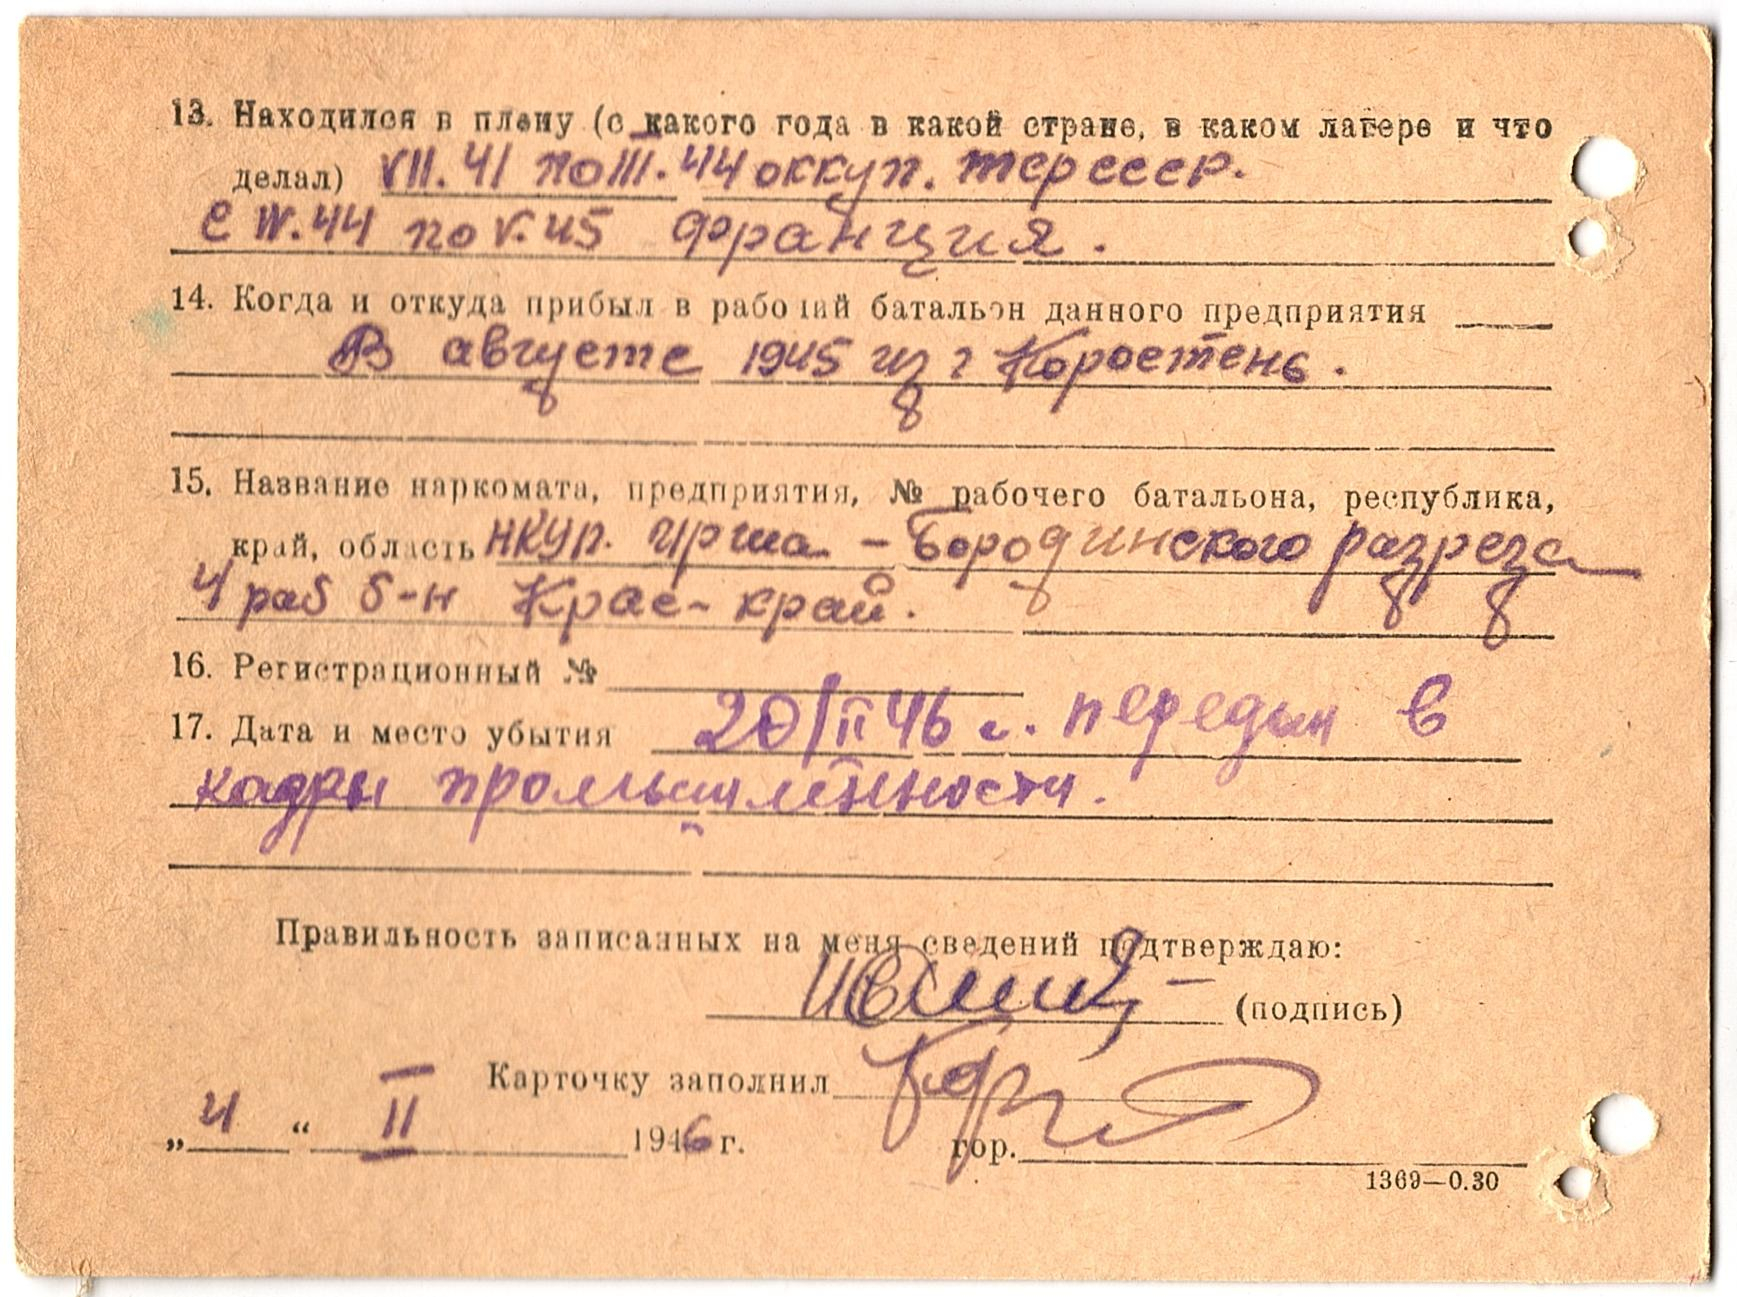 13. Находился в плену (с какого года в какой стране, в каком лагере и что
делал) VII. 41 по III. 44 оккуп. тер ссср.
с IV. 44 по V. 45 Франция.
14. Когда и откуда прибыл в рабочий батальон данного предприятия
В августе 1945 из г Коростень.
15. Название наркомата, предприятия, № рабочего батальона, республика,
край, область НКУП. Ирша - Бородинского разреза
4 раб б-н Крас- край.
16. Регистрационный №
17. Дата и место убытия 20/II 46 г. передан в
кадры промышленности.
Правильность записанных на меня сведений подтверждаю:
(подпись)
Карточку заполнил
„ 4 “ II 1946 г. гор.
1369—0.30